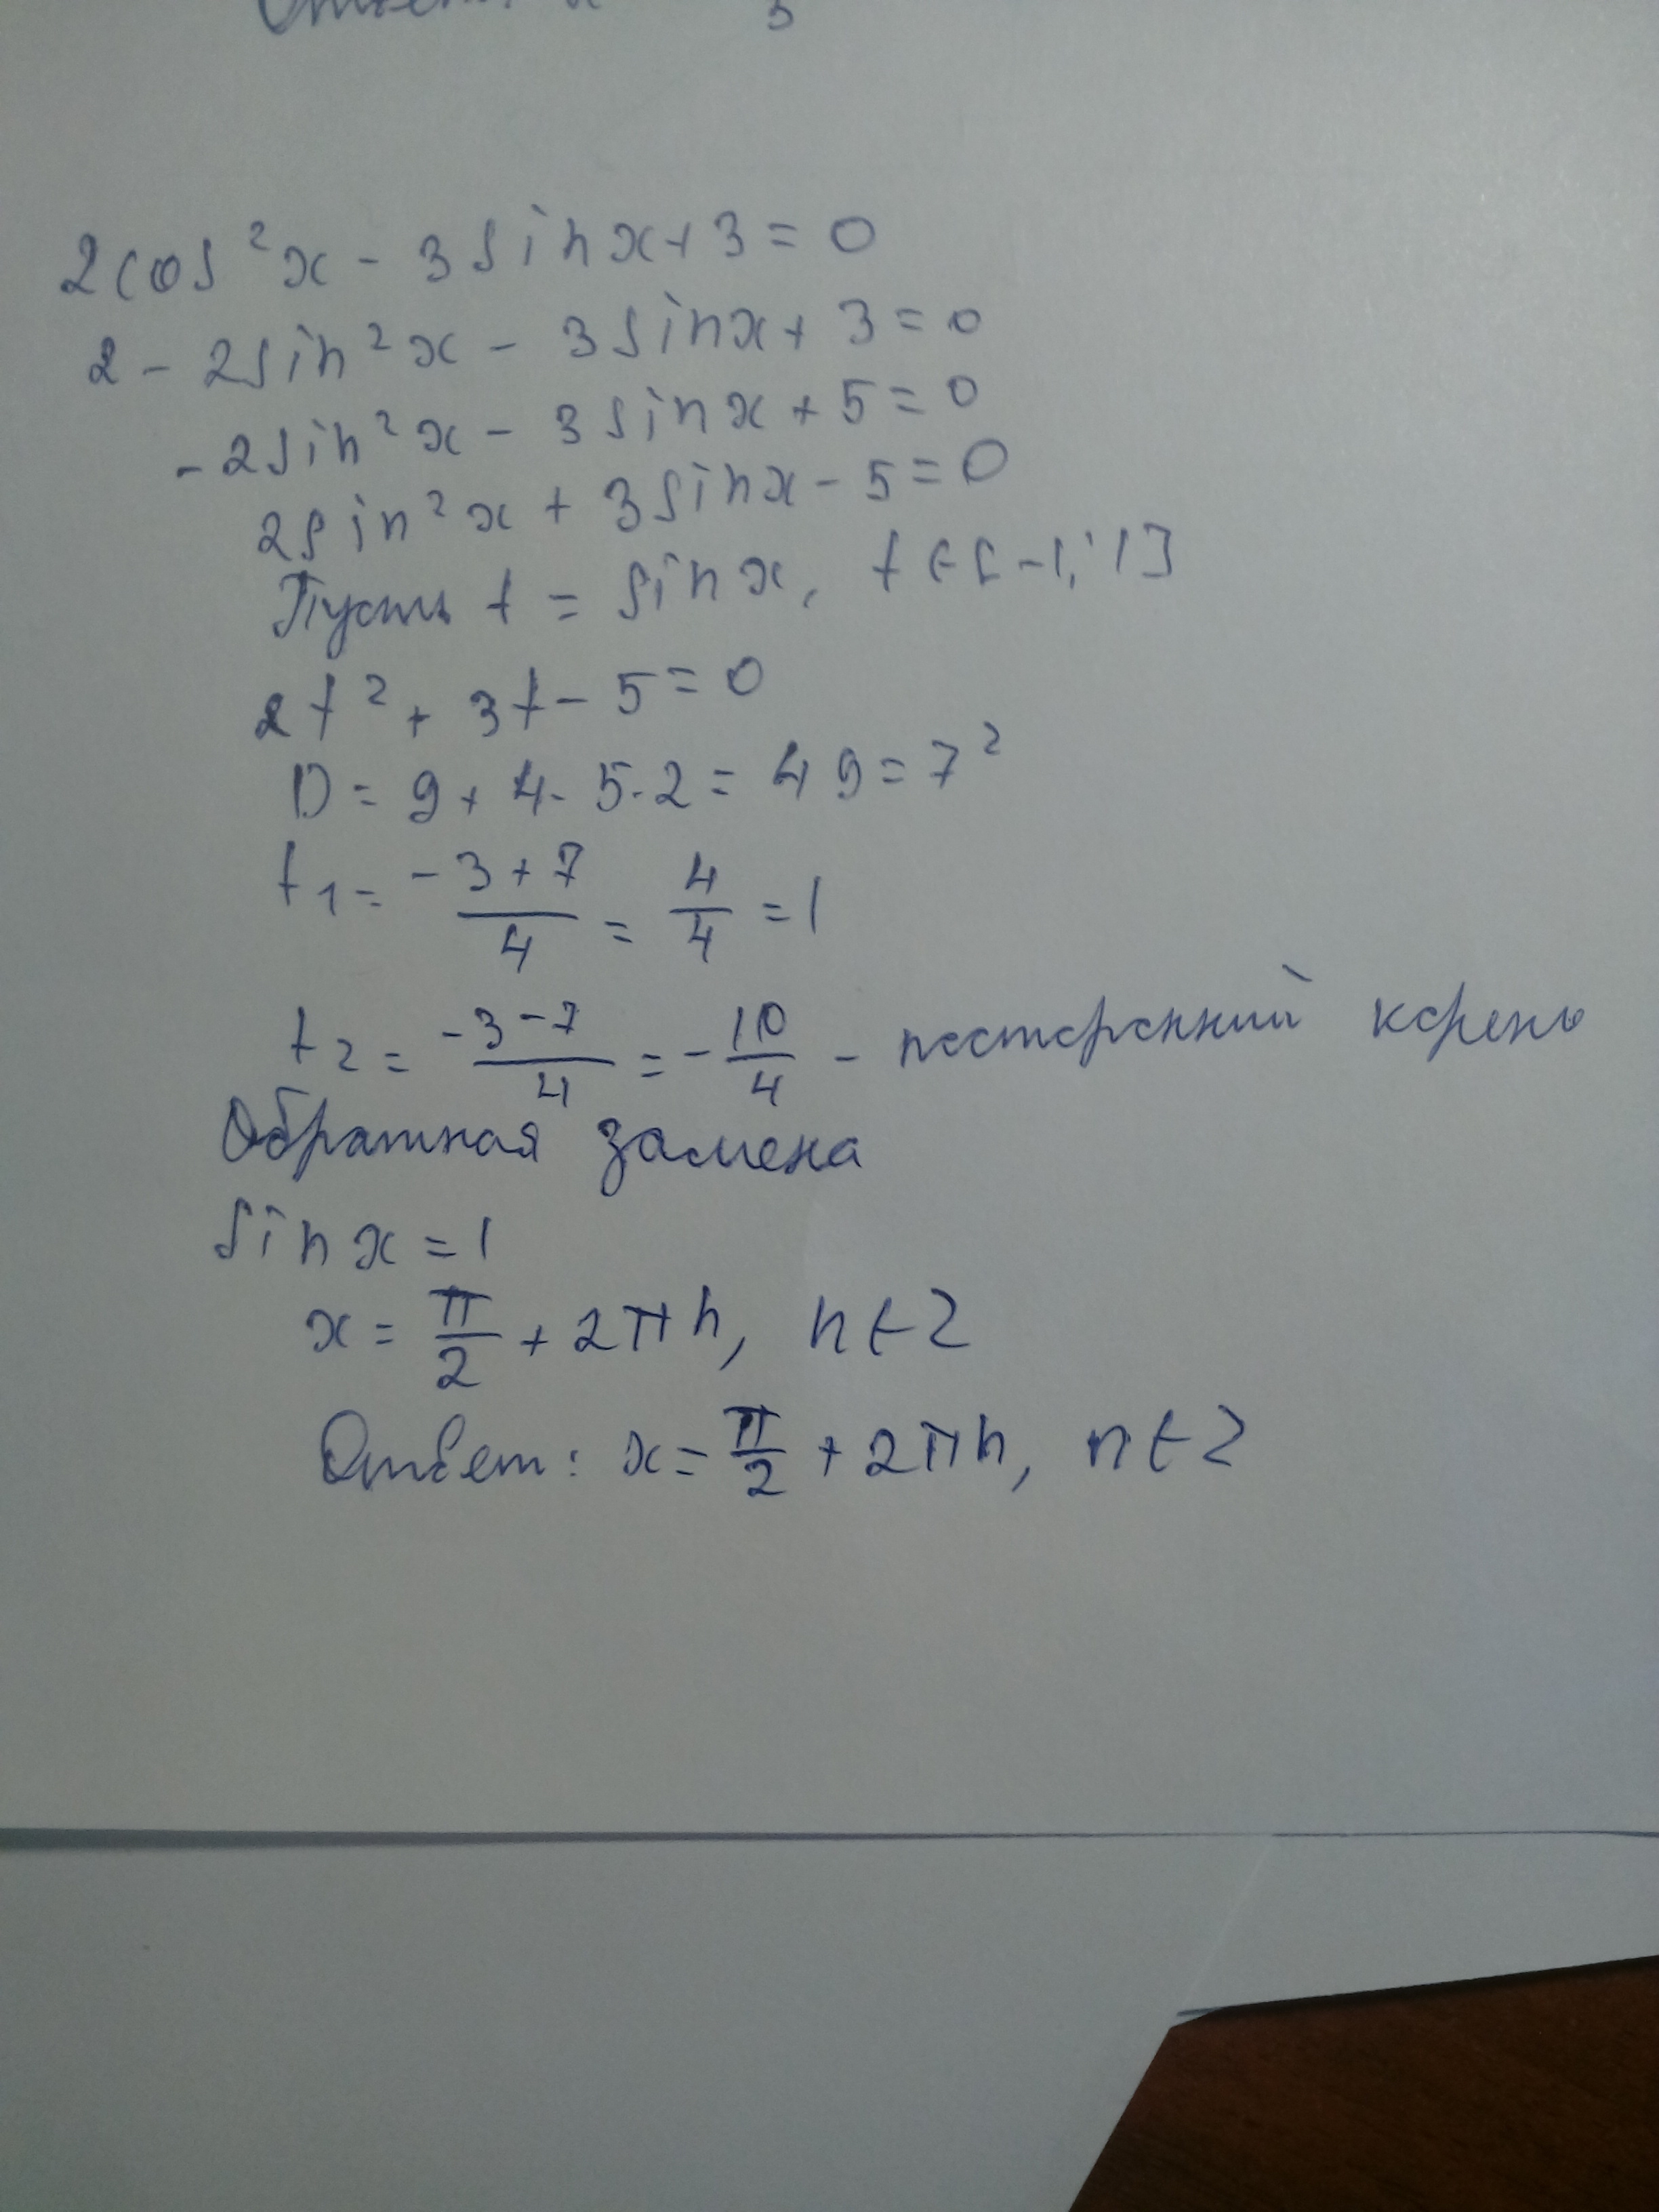 2cos²x - 3sinx + 3 = 0
2 - 2sin²x - 3sinx + 3 = 0
-2sin²x - 3sinx + 5 = 0
2sin²x + 3sinx - 5 = 0
Пусть t = sinx, t ∈ [-1; 1]
2t² + 3t - 5 = 0
D = 9 + 4·5·2 = 49 = 7²
t₁ = (-3+7)/4 = 4/4 = 1
t₂ = (-3-7)/4 = -10/4 - посторонний корень
Обратная замена
sinx = 1
x = π/2 + 2πn, n ∈ Z
Ответ: x = π/2 + 2πn, n ∈ Z